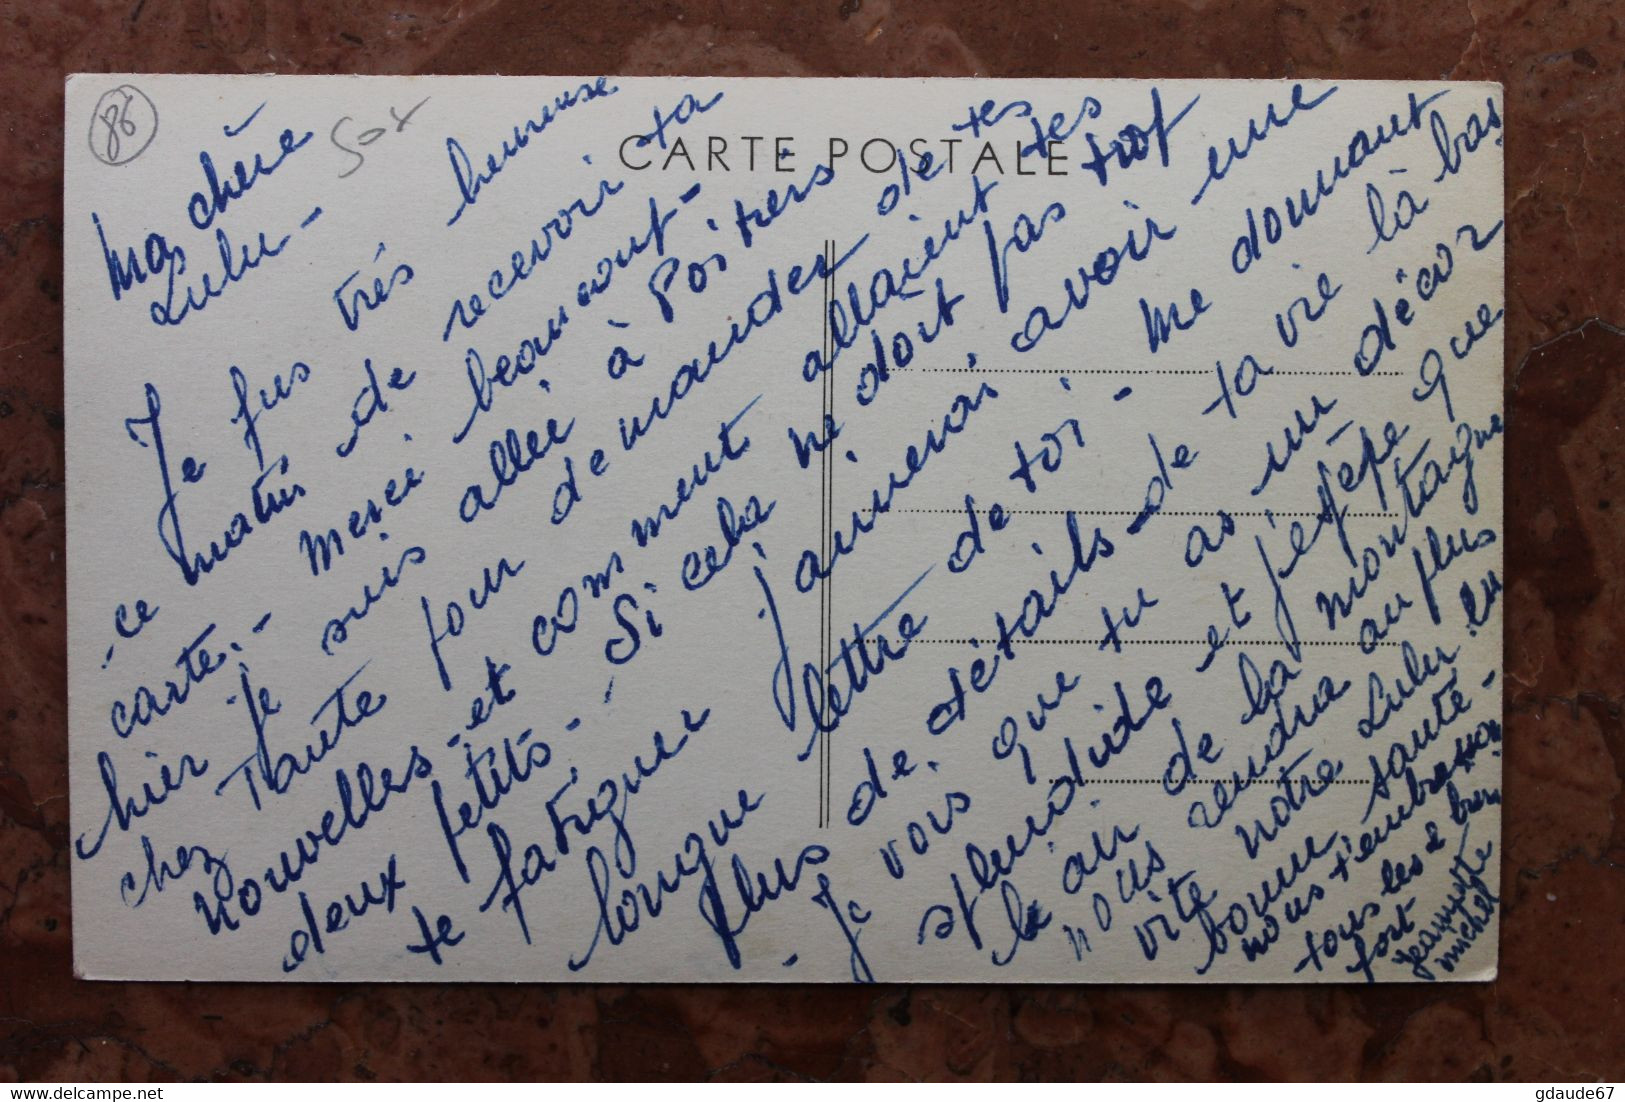 86
CARTE POSTALE
Ma chère
Lulu -
Je fus très heureuse
ce matin de recevoir ta
carte. - Merci beaucoup -
hier je suis allée à Poitiers
chez Tante pour demander de tes
nouvelles - et comment allaient tes
deux petits - Si cela ne doit pas trop
te fatiguer j'aimerai avoir une
longue lettre de toi - Me donnant
plus de détails de ta vie là bas
- Je vois que tu as un décor
splendide et j'espère que
le air de la montagne
nous rendra au plus
vite notre Lulu en
bonne santé -
nous t'embrassons
tous les 2 bien
fort
Michel
gdaude67